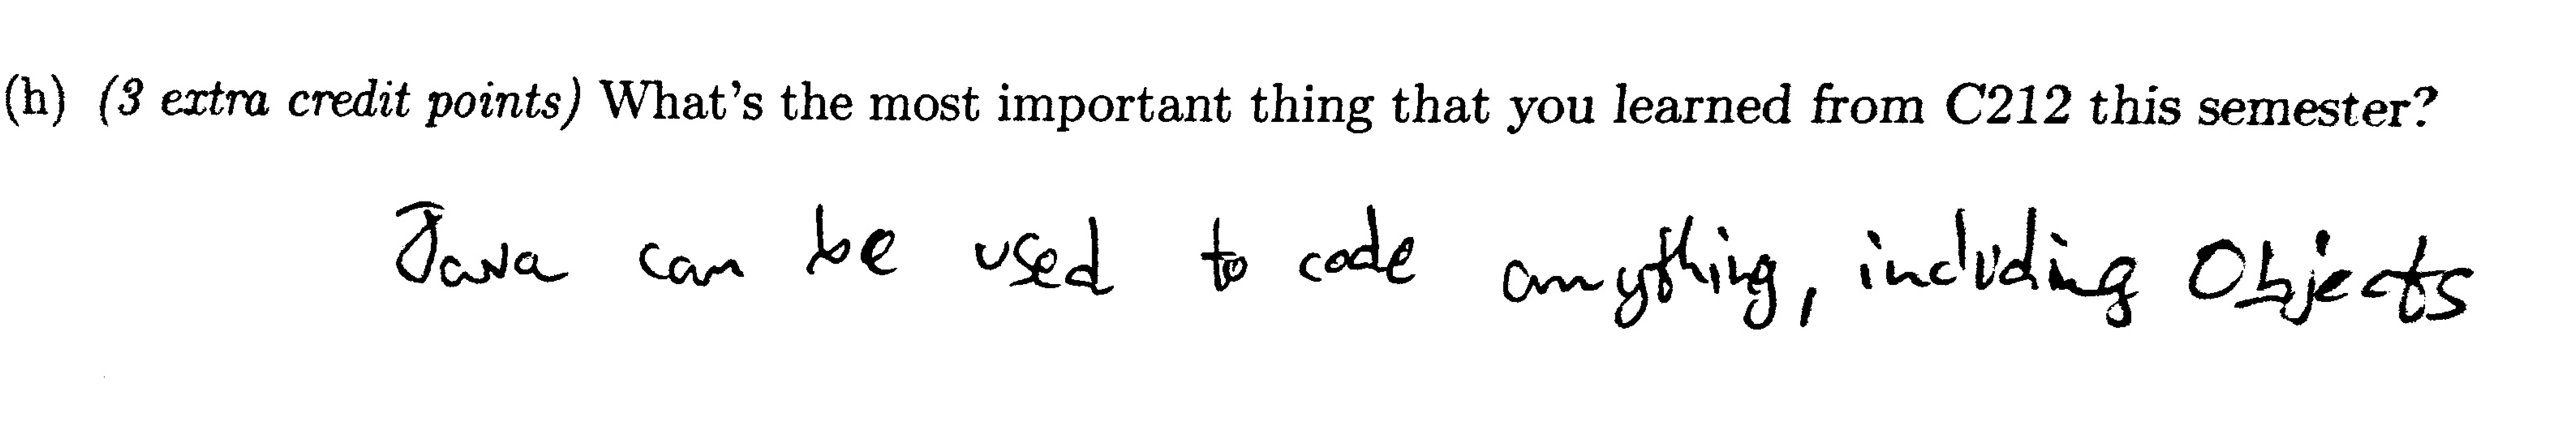 (h) (3 extra credit points) What's the most important thing that you learned from C212 this semester?
Java can be used to code anything, including Objects